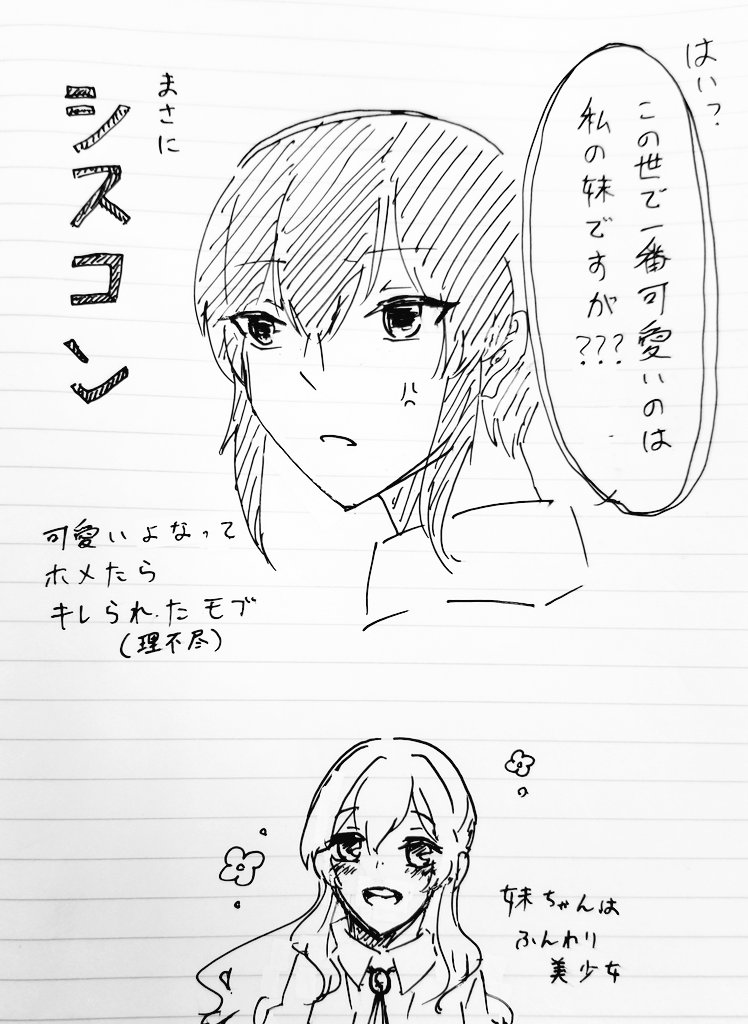 はい?
この世で一番可愛いのは
私の妹ですが???
まさに
シスコン
可愛いよなって
ホメたら
キレられたモブ
(理不尽)
妹ちゃんは
ふんわり
美少女